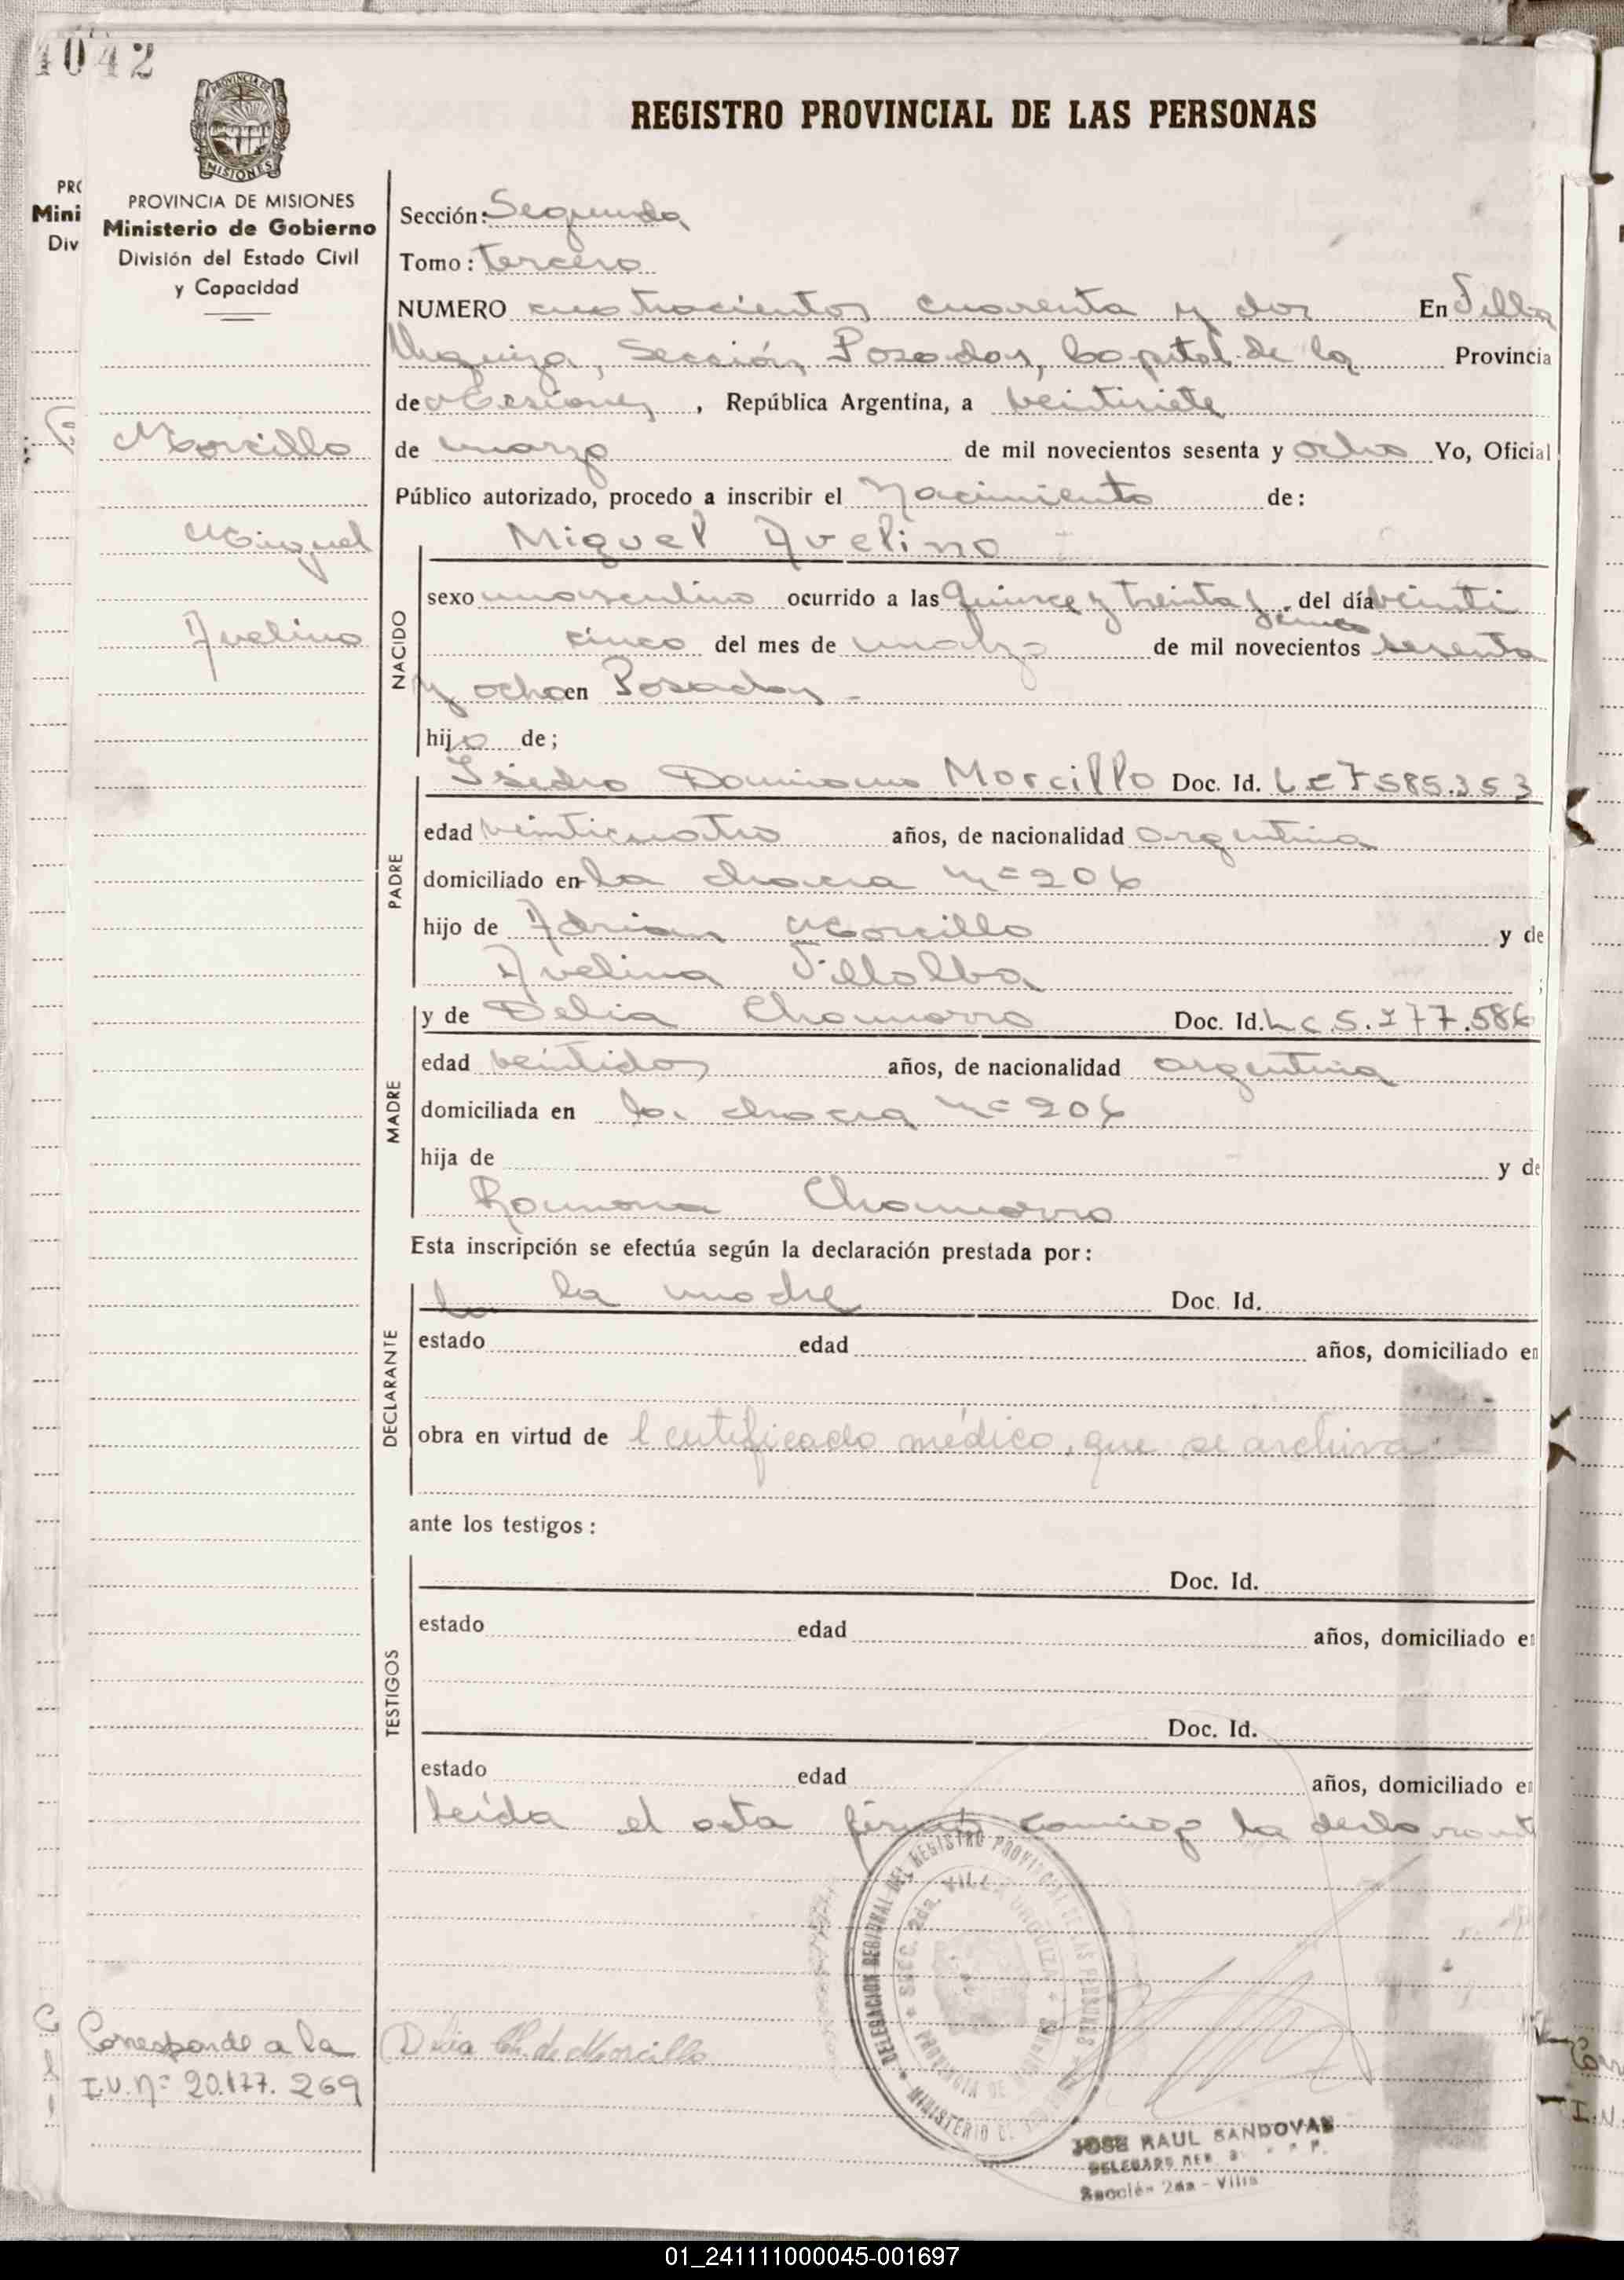 1042
REGISTRO PROVINCIAL DE LAS PERSONAS
PROVINCIA DE MISIONES
MISIONES
PROVINCIA DE MISIONES
Ministerio de Gobierno
División del Estado Civil
y Capacidad
PRO
Mini
Div
Morcillo
Miguel
Avelino
Sección: Segunda
Tomo: tercero
NUMERO cuatrocientos cuarenta y dos En Villa
Urquiza, Sección Posadas, Capital de la Provincia
de Misiones, República Argentina, a veintisiete
de marzo de mil novecientos sesenta y ocho Yo, Oficial
Público autorizado, procedo a inscribir el Nacimiento de:
Miguel Avelino
NACIDO
sexo masculino ocurrido a las quince y treinta del día veinti
cinco del mes de marzo de mil novecientos sesenta
y ocho en Posadas -
hijo de;
PADRE
Isidro Damiano Morcillo Doc. Id. LE 7585.353
edad veinticuatro años, de nacionalidad argentina
domiciliado en la chacra Nº 206
hijo de Adrian Morcillo y de
Avelina Villalba ;
MADRE
y de Delia Chamorro Doc. Id. Lc 5.177.586
edad veintidos años, de nacionalidad argentina
domiciliada en la chacra Nº 206
hija de y de
Ramona Chamorro
Esta inscripción se efectúa según la declaración prestada por:
DECLARANTE
la madre Doc. Id.
estado edad años, domiciliado en
obra en virtud de l certificado médico, que se archiva
ante los testigos:
TESTIGOS
Doc. Id.
estado edad años, domiciliado e
Doc. Id.
estado edad años, domiciliado e
leída el acta firma conmigo la declarante
DELEGACION REGIONAL DEL REGISTRO PROVINCIAL DE LAS PERSONAS
SECC. 2da. VILLA URQUIZA
MINISTERIO
Corresponde a la
I.U. Nº 20.177.269
Delia Ch. de Morcillo
JOSE RAUL SANDOVAL
Sección 2da - Villa
01_241111000045-001697